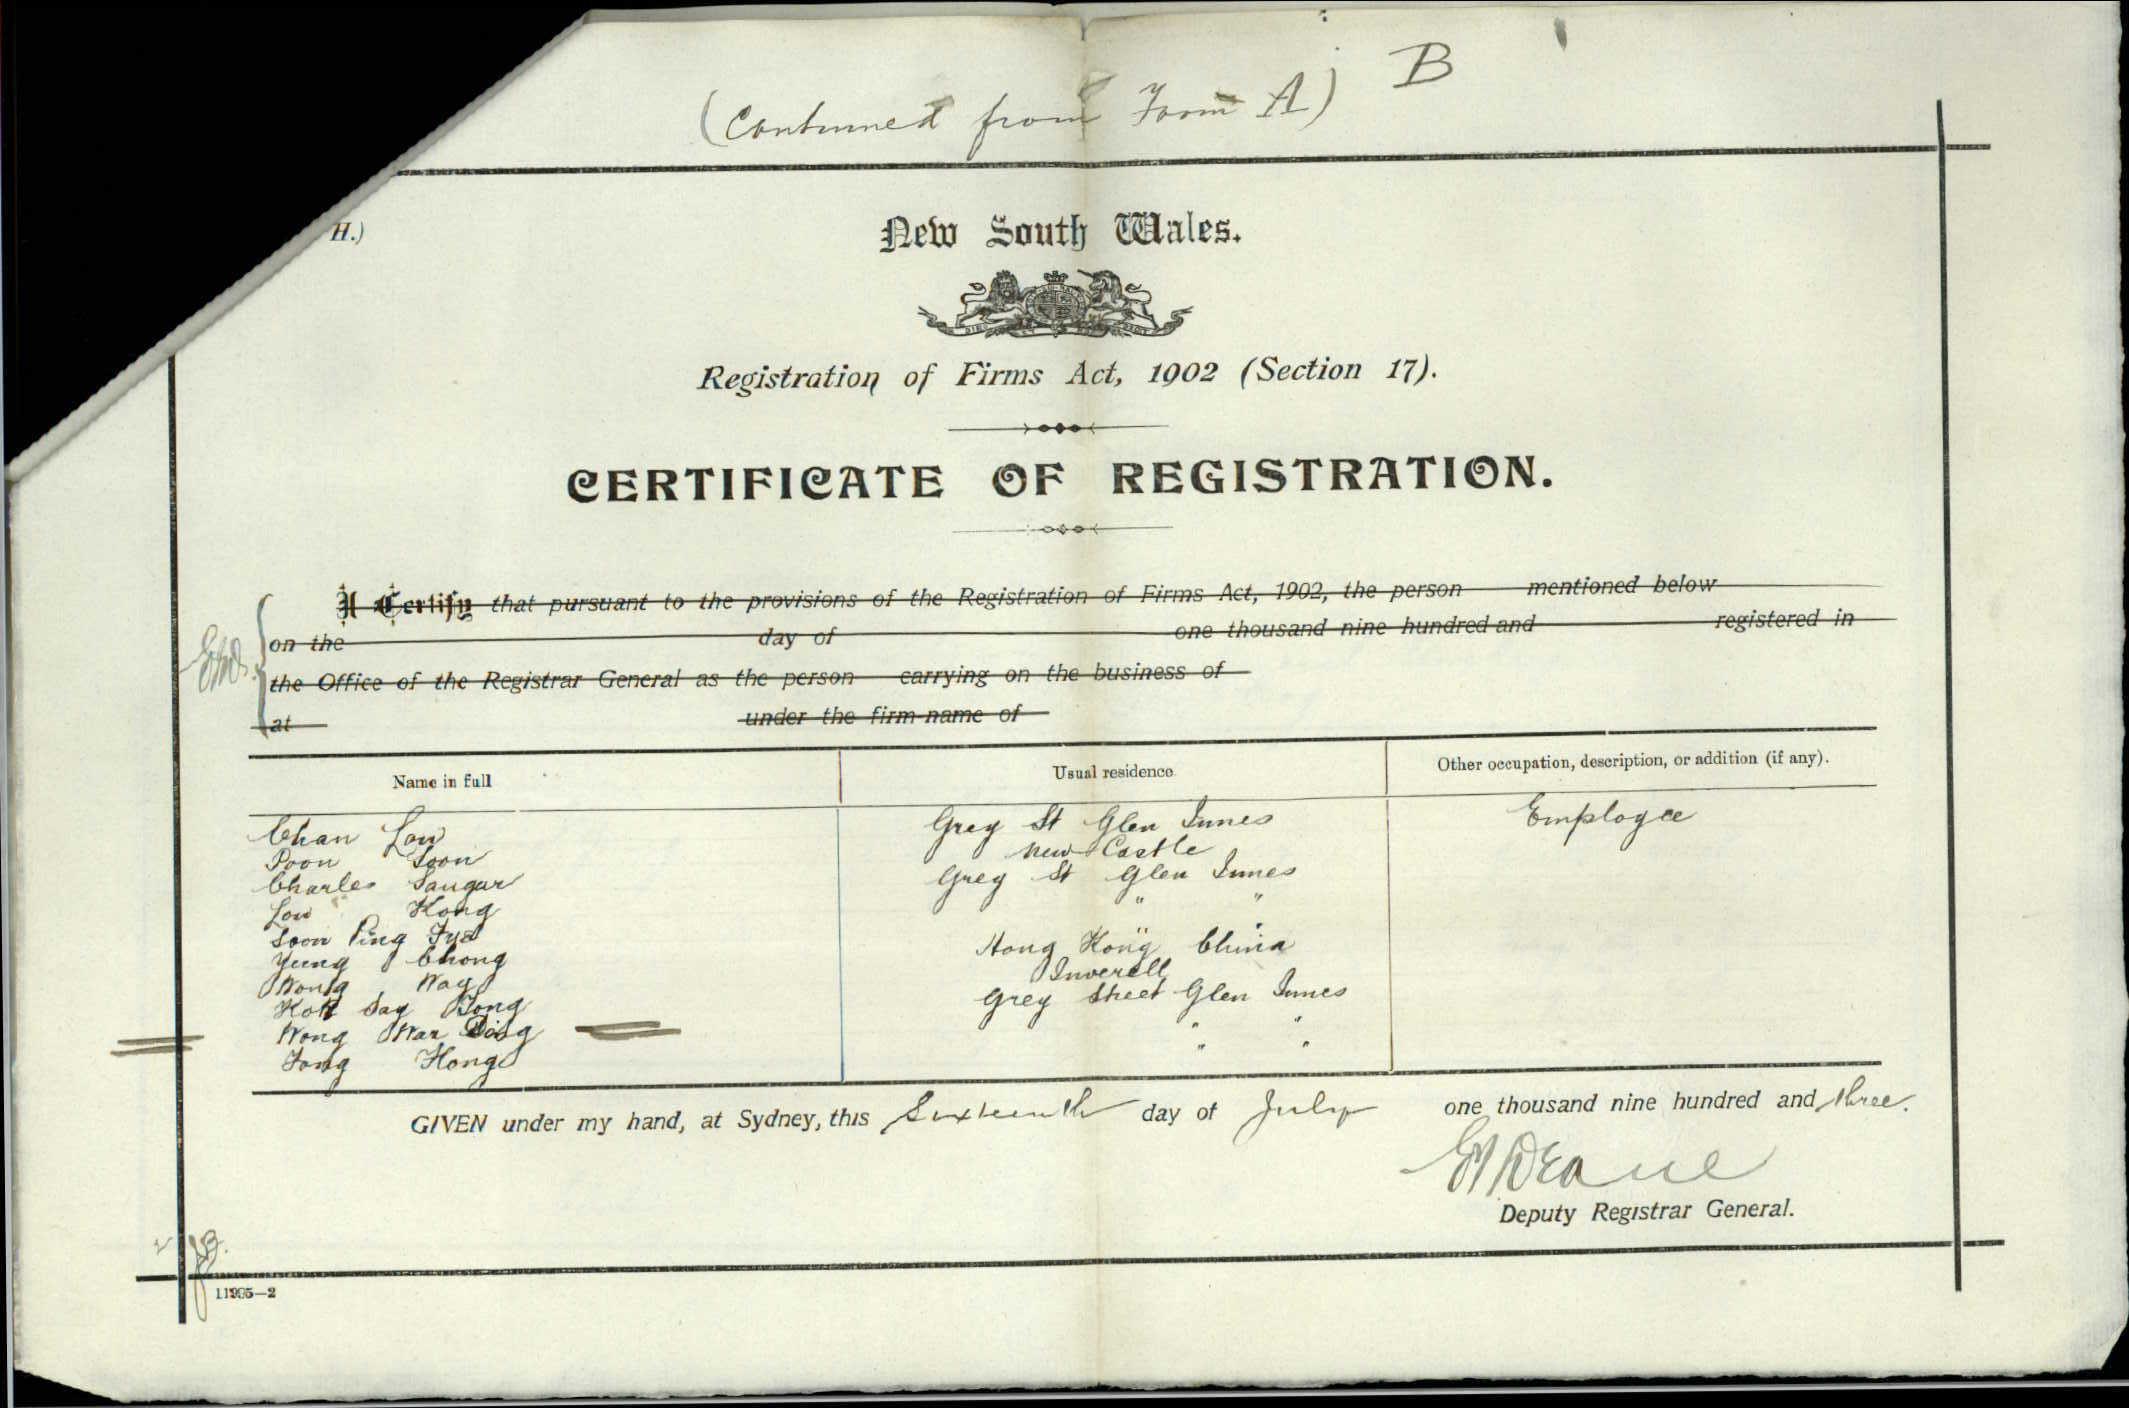 B
(Continued from Form A)
H.)
New South Wales.
Registration of Firms Act, 1902 (Section 17).
CERTIFICATE OF REGISTRATION.
I Certify that pursuant to the provisions of the Registration of Firms Act, 1902, the person mentioned below
on the day of one thousand nine hundred and registered in
the Office of the Registrar General as the person carrying on the business of
at under the firm-name of
Name in full Usual residence Other occupation, description, or addition (if any).
Chan Low Grey St Glen Innes Employee
Poon Soon New Castle
Charles Saugur Grey St Glen Innes
Low Hong " "
Soon Ping Fye " "
Yeung Chong Hong Kong China
Wong Way Inverell
Hott Say Tong Grey Street Glen Innes
Wong War Ding " "
Fong Hong " "
GIVEN under my hand, at Sydney, this Sixteenth day of July one thousand nine hundred and three.
Deane
Deputy Registrar General.
11995—2